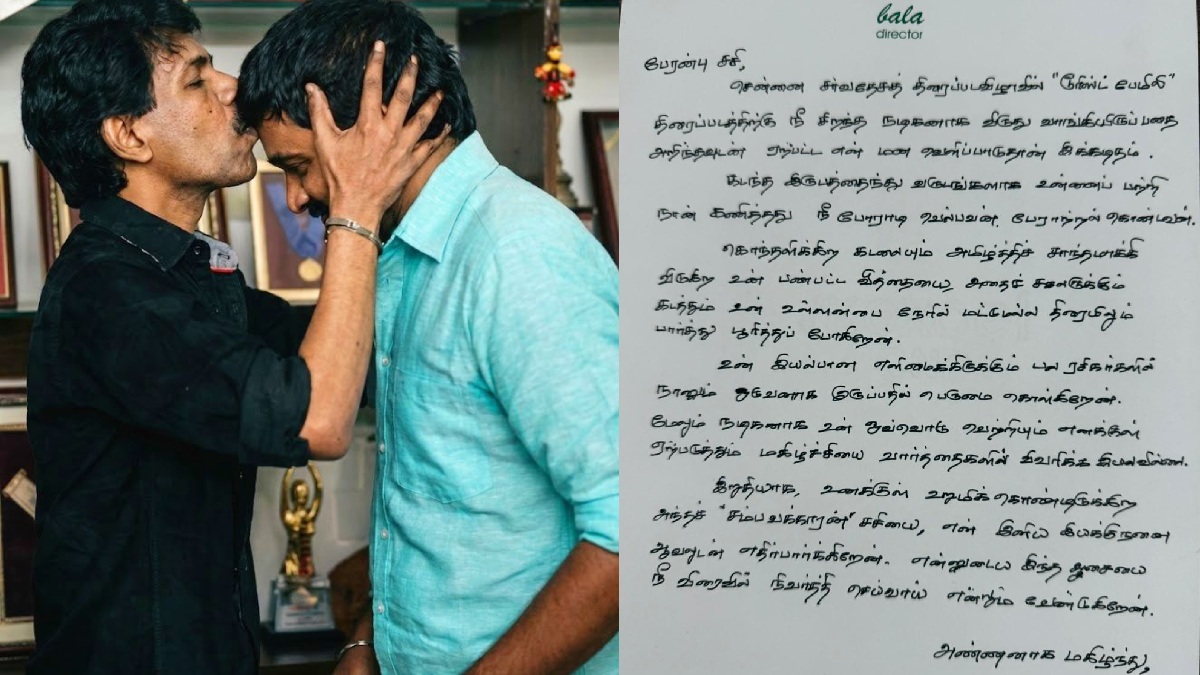 bala
director
பேரன்பு சசி,
சென்னை சர்வதேசத் திரைப்படவிழாவில் "டூரிஸ்ட் பேமிலி"
திரைப்படத்திற்கு நீ சிறந்த நடிகனாக விருது வாங்கியிருப்பதை
அறிந்தவுடன் ஏற்பட்ட என் மன வெளிப்பாடுதான் இக்கடிதம்.
கடந்த இருபத்தைந்து வருடங்களாக உன்னைப் பற்றி
நான் கணித்தது நீ போராடி வெல்பவன். பேராற்றல் கொண்டவன்.
கொந்தளிக்கிற கடலையும் அமிழ்த்திச் சாந்தமாக்கி
விடுகிற உன் பண்பட்ட வித்தையை, அதைச் சகலருக்கும்
கடத்தும் உன் உள்ளன்பை நேரில் மட்டுமல்ல திரையிலும்
பார்த்து பூரித்துப் போகிறேன்.
உன் இயல்பான எளிமைக்கிருக்கும் பல ரசிகர்களில்
நானும் ஒருவனாக இருப்பதில் பெருமை கொள்கிறேன்.
மேலும் நடிகனாக உன் ஒவ்வொரு வெற்றியும் எனக்குள்
ஏற்படுத்தும் மகிழ்ச்சியை வார்த்தைகளில் விவரிக்க இயலவில்லை.
இறுதியாக, உனக்குள் உறுமிக் கொண்டிருக்கிற
அந்தச் "சம்பவக்காரன்" சசியை, என் இனிய இயக்குநனை
ஆவலுடன் எதிர்பார்க்கிறேன். என்னுடைய இந்த ஆசையை
நீ விரைவில் நிவர்த்தி செய்வாய் என்றும் வேண்டுகிறேன்.
அண்ணனாக மகிழ்ந்து,